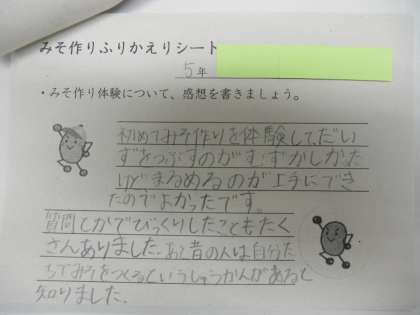 みそ作りふりかえりシート
5年
・みそ作り体験について、感想を書きましょう。
初めてみそ作りを体験して、だい
ずをつぶすのがすずかしかった
けどまるめるのが上手にでき
たのでよかったです。
質問とかでびっくりしたこともたく
さんありました。あと昔の人は自分た
ちでみそをつくるというしゅうかんがあると
知りました。